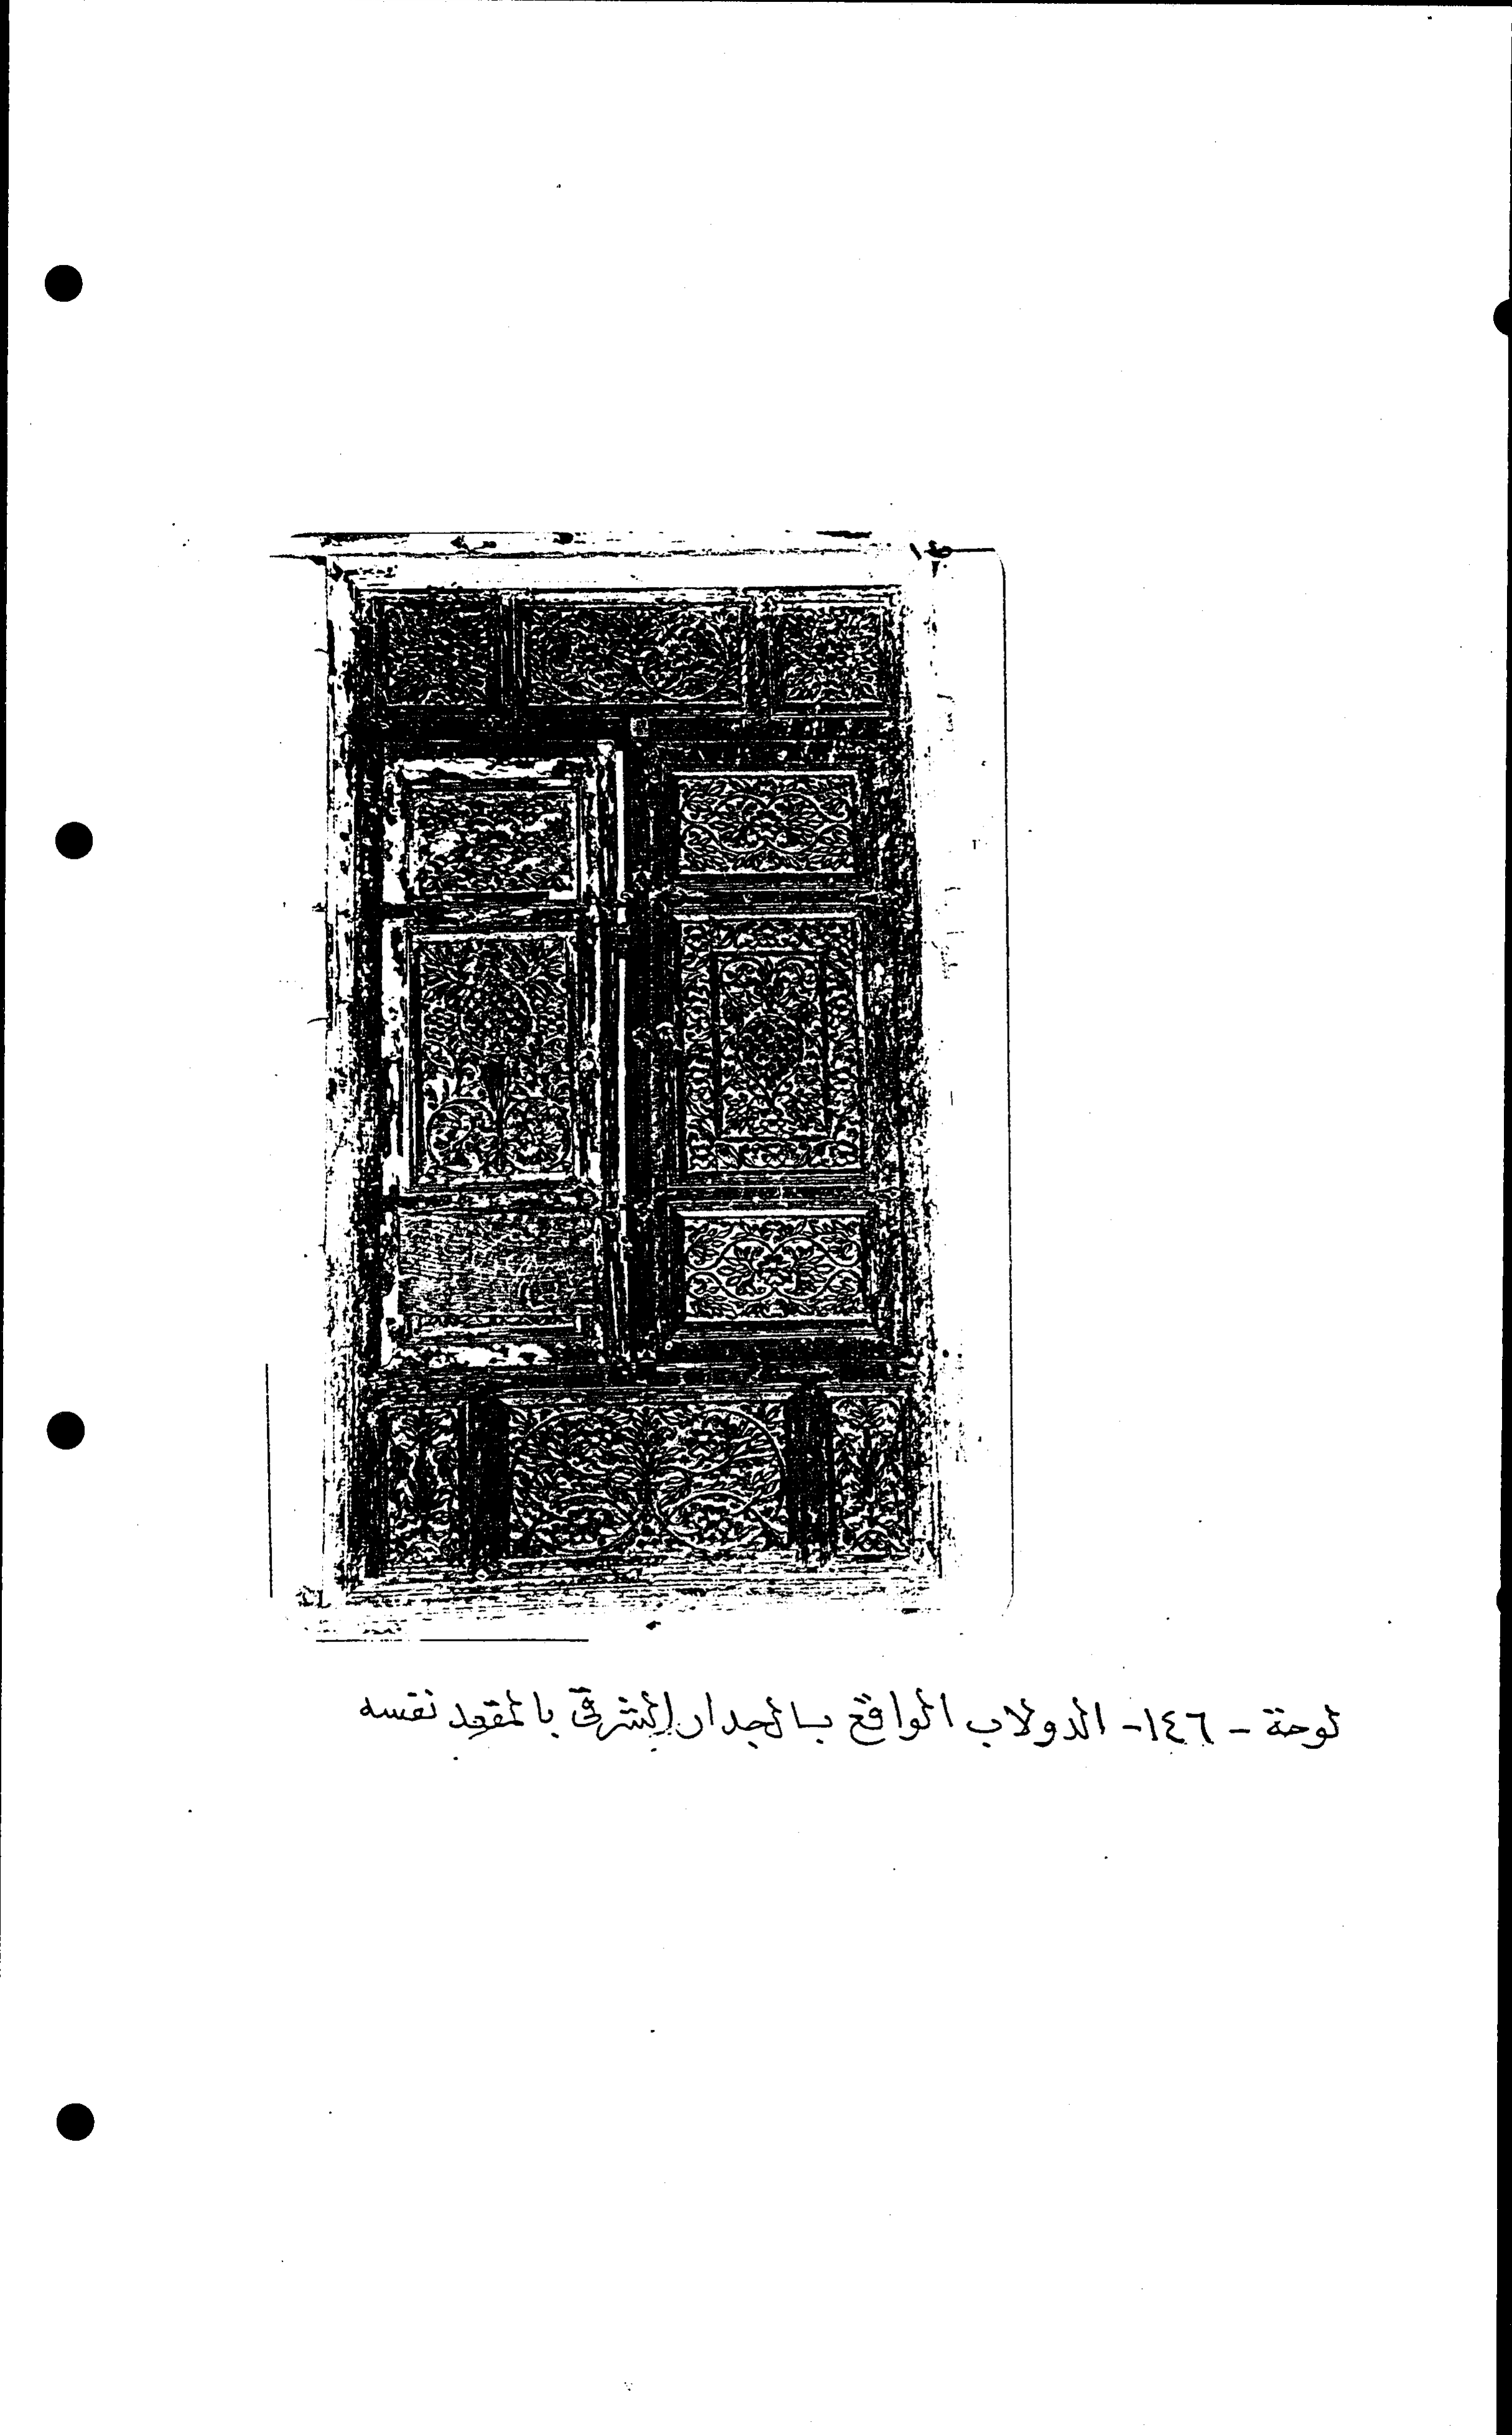 لوحة - ١٤٦- الدولاب الواقع بالجدار الشرقى بالمقعد نفسه